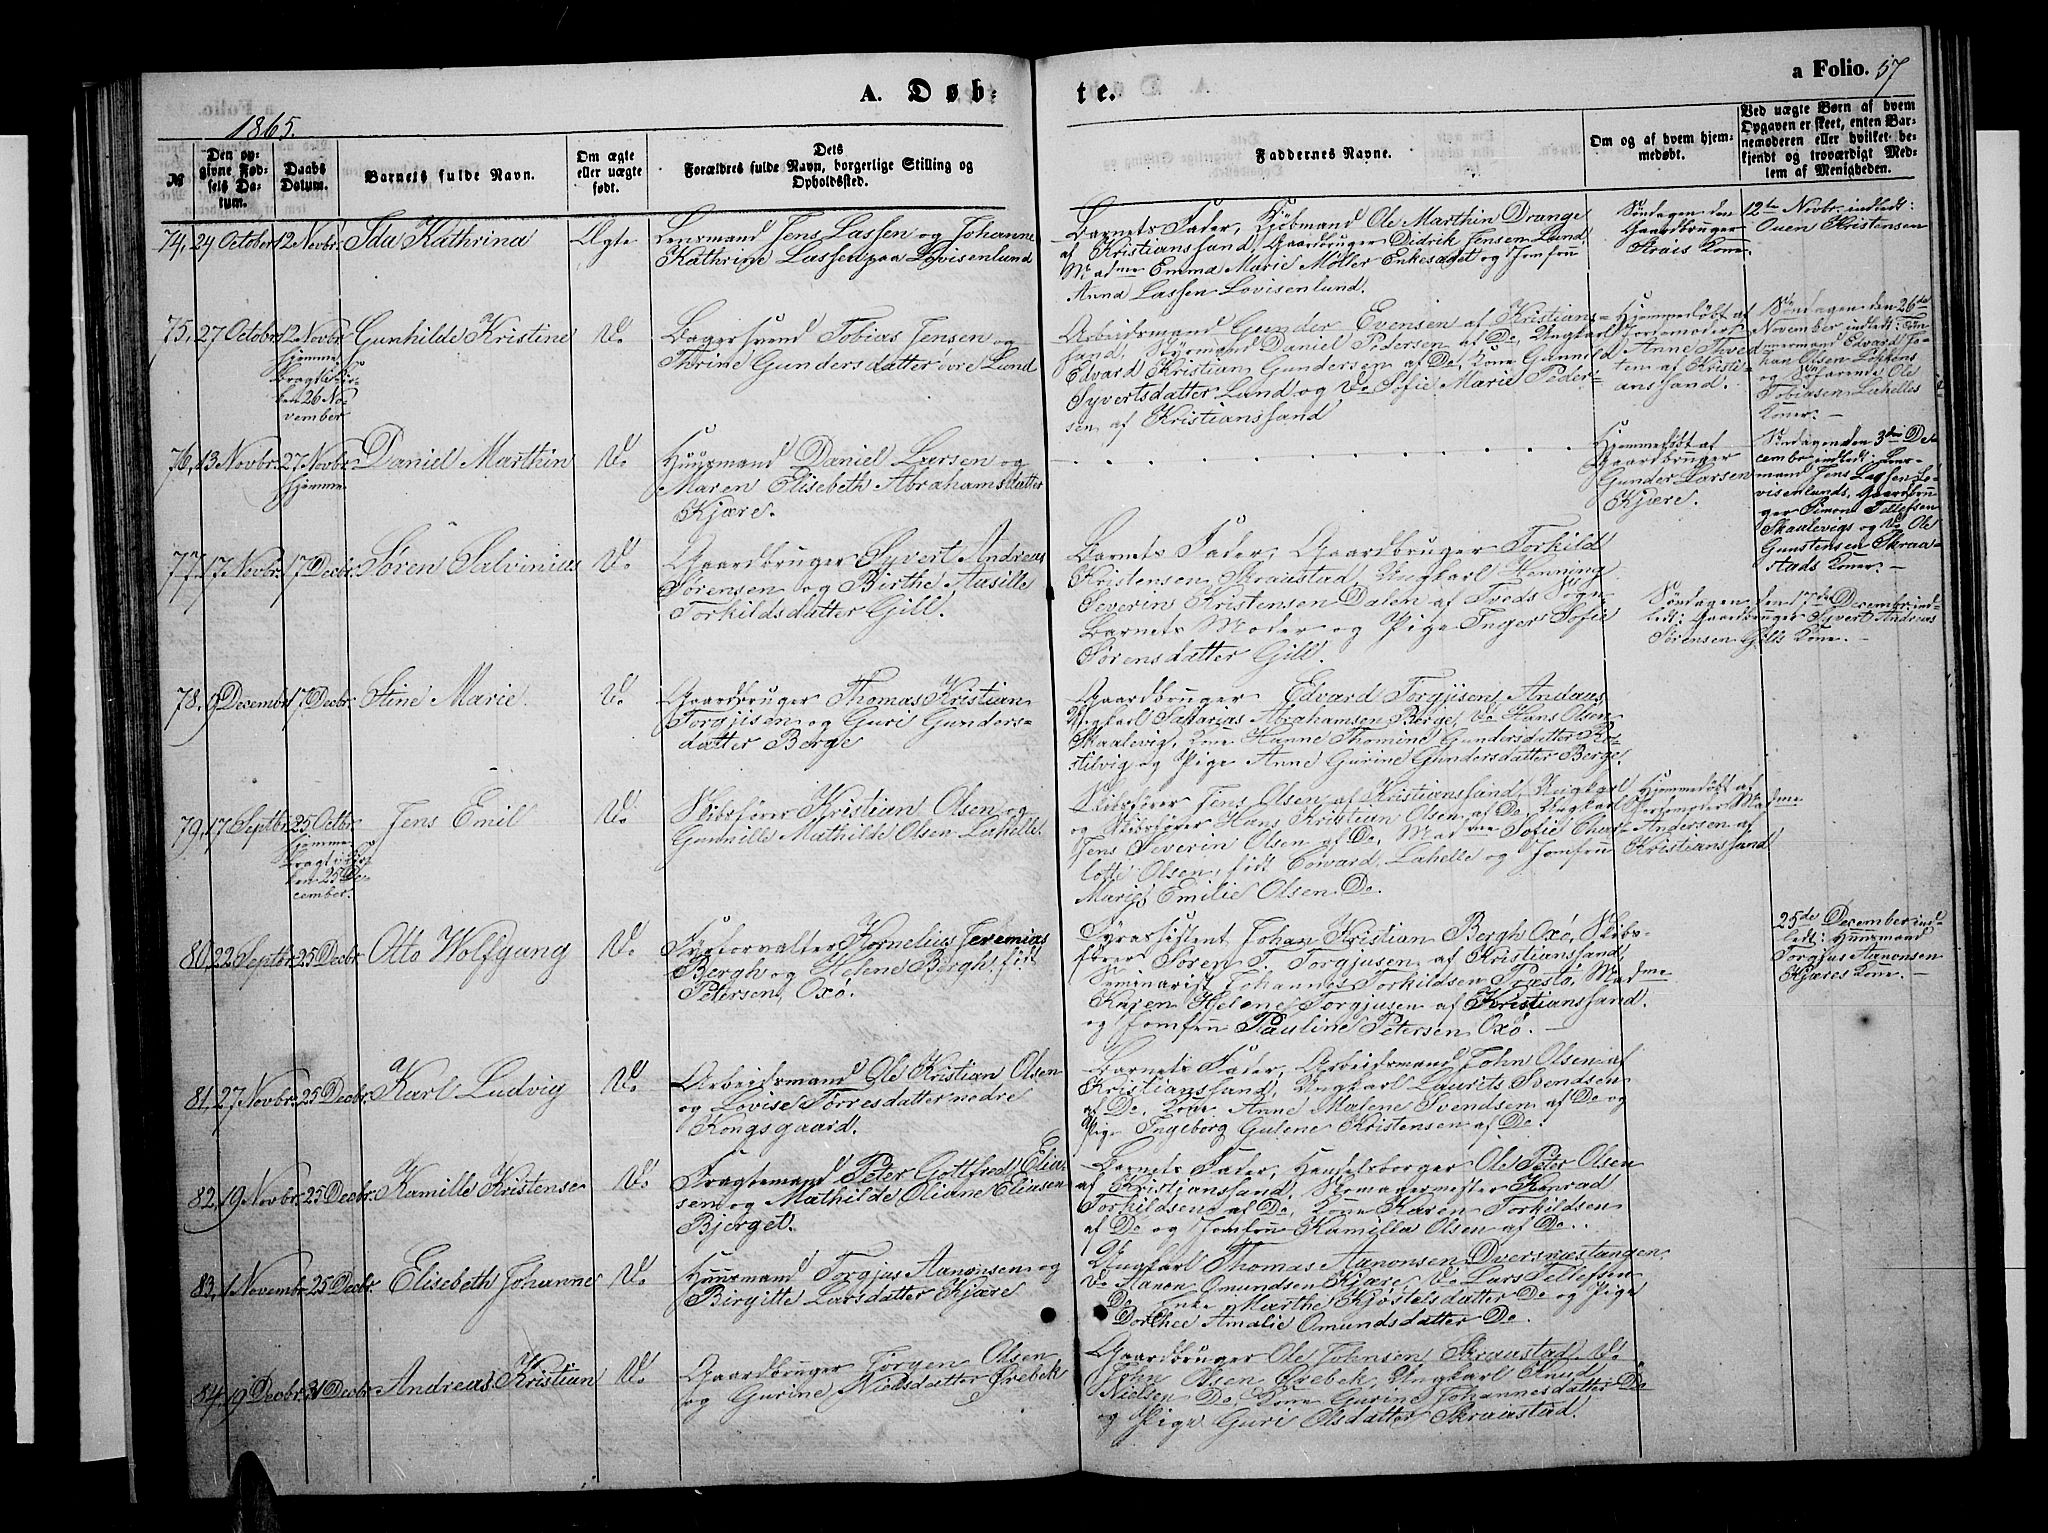 A. Døb-
te.
a Folio. 57
1865.
№
Den opgivne Fødsels Datum.
Daabs Datum.
Barnets fulde Navn.
Om ægte eller uægte født.
Dets
Forældres fulde Navn, borgerlige Stilling og
Opholdssted.
Faddernes Navne.
Om og af hvem hjemmedøbt.
Ved uægte Børn af hvem
Opgaven er skeet, enten Barnemoderen eller hvilket bekjendt og troværdigt Medlem af Menigheden.
74, 24 October 12 Novbr. Ida Kathrina Ægte
Lensmand Jens Lassen og Johanne
Kathrine Lassen paa Lovisenlund
Barnets Fader, Kjöbmand Ole Marthin Drange
af Kristianssand, Gaardbruger Didrik Jensen Lund,
Madme Emma Marie Møller Enkesædet og Jomfru
Anna Lassen Lovisenlund.
Søndagen den 12te Novbr. indledt:
Gaardbruger Ouen Kristensen
Strais Kone.
75, 27 October 12 Novbr. Gunhilde Kristine Do
hjemme,
bragt i Kir-
ken 26 No-
vember
Bagersvend Tobias Jensen og
Thrine Gundersdatter övre Lund
Arbeidsmand Gunder Evensen af Kristians-
sand, Styrmand Daniel Pedersen af Do, Ungkarl
Edvard Kristian Gundersen af Do, Kone Gunnild
Syvertsdatter Lund og Do Sofie Marie Peder-
sen af Kristianssand
Hjemmedöbt af
Jordemoder
Anne Tved-
ten af Kristi-
anssand.
Søndagen den 26de
November indledt: Töm-
mermand Edvard Jo-
han Olsen Lökkens
og Söfarende Ole
Tobiasen Lahelles
Koner. -
76, 13 Novbr. 27 Novbr. Daniel Marthin Do
hjemme
Huusmand Daniel Larsen og
Maren Elisebeth Abrahamsdatter
Kjære.
Hjemmedöbt af
Gaardbruger
Gunder Larsen
Kjære.
Søndagen den 3die De-
cembr. indledt: Lens-
mand Jens Lassen Lo-
visenlunds, Gaardbru-
ger Simon Tellefsen
Skaalevigs og Do Ole
Gunstensen Skraa-
stads Koner. -
77, 17 Novbr. 17 Decbr. Søren Salvinius Do
Gaardbruger Syvert Andreas
Sørensen og Birthe Aasille
Torkildsdatter Gill.
Barnets Fader, Gaardbruger Torkild
Kristensen Skraastad, Ungkarl Henning
Severin Kristensen Dalen af Tveds Sogn,
Barnets Moder og Pige Inger Sofie
Sørensdatter Gill.
Söndagen den 17de December ind-
ledt: Gaardbruger Syvert Andreas
Sörensen Gills Kone. -
78, 9 Decembr. 17 Decbr. Stine Marie Do
Gaardbruger Thomas Kristian
Torgjisen og Guri Gunders-
datter Berge
Gaardbruger Edvard Torgjisen Andaas,
Ungkarl Sakarias Abrahamsen Berge, Do Hans Olsen
Skaalevig, Kone Hanne Thomine Gundersdatter Ro-
stilvig og Pige Anne Gurine Gundersdatter Berge.
79, 17 Septbr. 25 Octbr. Jens Emil Do
hjemme og
bragt i Kir-
ken 25 De-
cember.
Skibsfører Kristian Olsen og
Gunnille Mathilde Olsen Lahelle.
Skibsfører Jens Olsen af Kristianssand, Ungkarl
og Skibsfører Hans Kristian Olsen af Do, Ungkarl
Jens Severin Olsen af Do, Madme Sofie Char-
lotte Olsen, född Edvard, Lahelle og Jomfru
Marie Emilie Olsen Do.
Hjemmedöbt af
Jordmoder Madme
Andersen af
Kristianssand
80, 22 Septbr. 25 Decbr. Otto Wolfgung Do
Fyrforvalter Kornelius Jeremias
Bergh og Helene Bergh, född
Petersen, Oxø.
Fyrassistent Johan Kristian Bergh Oxø, Skibs-
fører Søren T. Torgjusen af Kristianssand,
Seminarist Johannes Torkildsen Præstö, Madme
Karen Helene Torgjusen af Kristianssand.
og Jomfru Pauline Petersen Oxø. -
25de December ind-
ledt: Huusmand
Torgjus Aanonsen
Kjæres Kone. -
81, 27 Novbr. 25 Decbr. Karl Ludvig Do
Arbeidsmand Ole Kristian Olsen
og Lovise Tørresdatter nedre
Kongsgaard.
Barnets Fader, Arbeidsmand John Olsen af
Kristianssand, Ungkarl Laurits Svendsen
af Do, Kone Anne Malene Svendsen af Do og
Pige Ingeborg Gulene Kristensen af Do.
82, 19 Novbr. 25 Decbr. Kamille Kristense Do
Fragtemand Peter Gottfred Elia-
sen og Mathilde Oliane Eliasen
Bjerget.
Barnets Fader, Handelsborger Ole Peter Olsen
af Kristianssand, Skomagermester Konrad
Torkildsen af Do, Kone Karen Torkildsen
af Do og Jomfru Kamilla Olsen af Do.
83, 1 Novembr. 25 Decbr. Elisebeth Johanne Do
Huusmand Torgjus Aanonsen og
Birgitte Larsdatter Kjære
Ungkarl Thomas Aanonsen Dversnæstangen,
Do Aanon Omundsen Kjære, Do Lars Tellefsen
Do, Enke Marthe Kjøstelsdatter Do og Pige
Dorthee Amalie Omundsdatter Do.
84, 19 Decbr. 31 Decbr. Andreas Kristian Do
Gaardbruger Jörgen Olsen
og Gurine Nielsdatter Ørebek
Gaardbruger Ole Johnsen Skraastad, Do
John Olsen Ørebek, Ungkarl Knud
Nielsen Do, Kone Gurine Johannesdatter Do
og Pige Guri Olsdatter Skraastad.